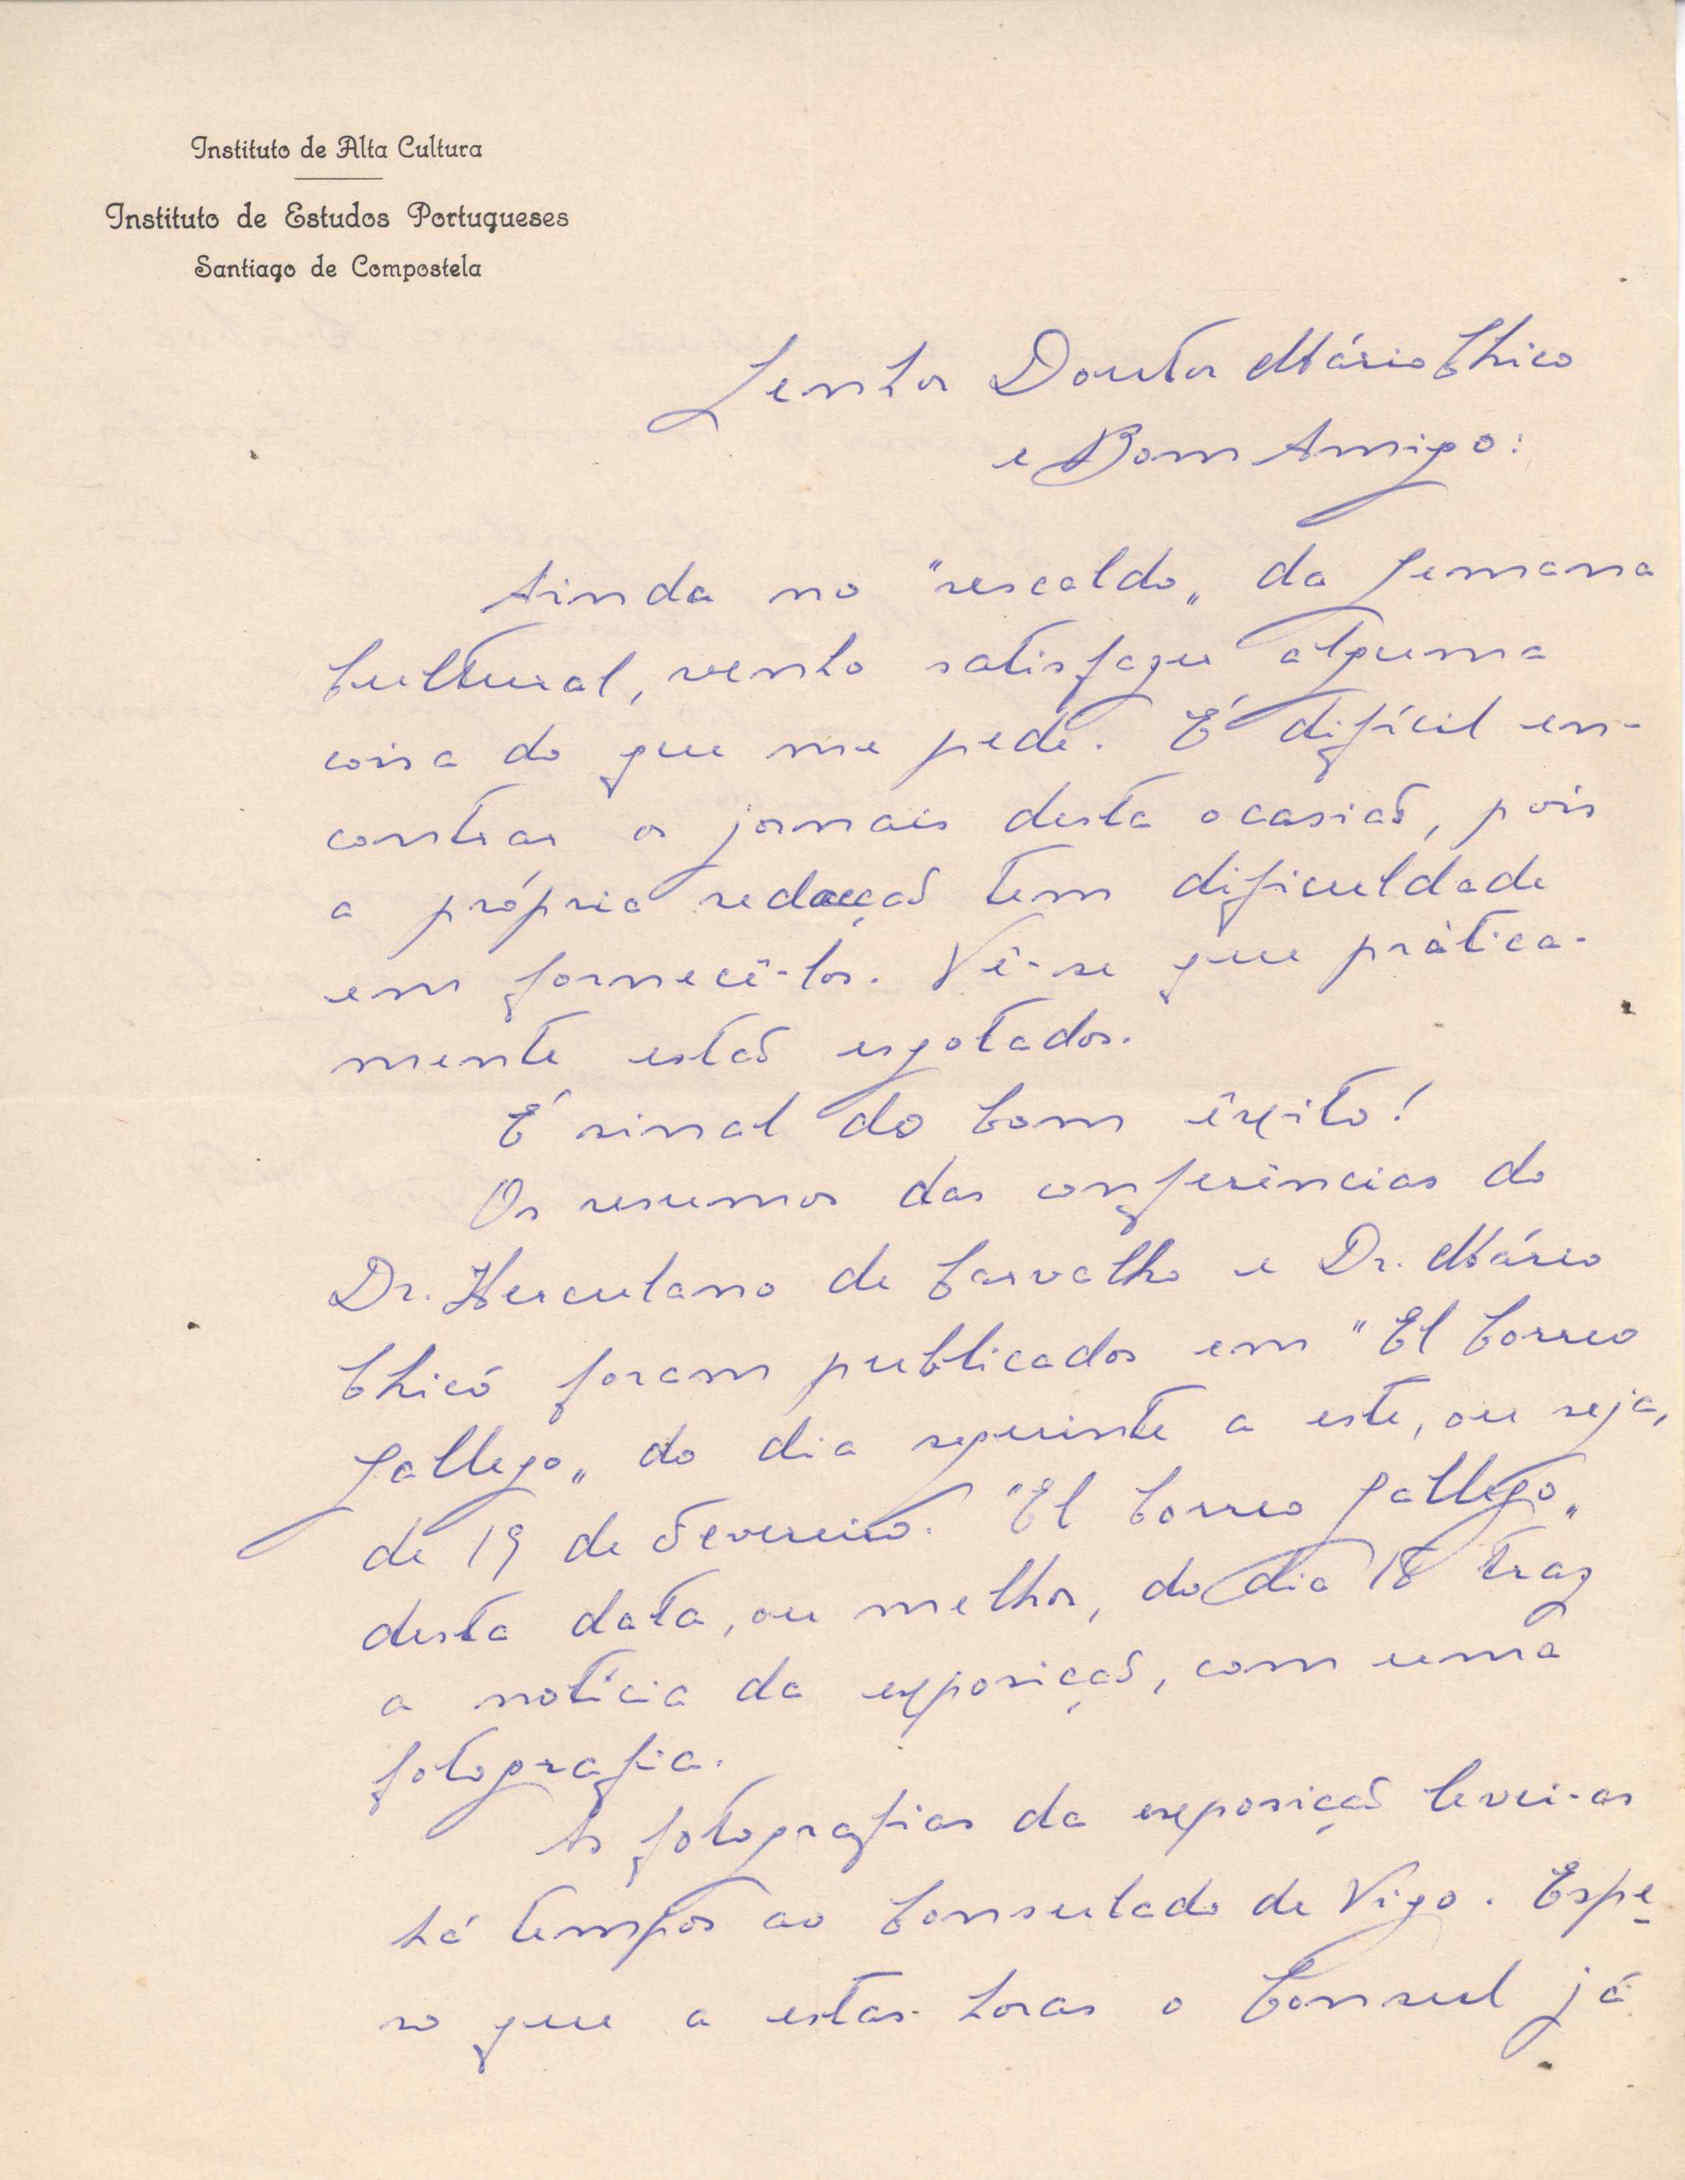 Instituto de Alta Cultura
Instituto de Estudos Portugueses
Santiago de Compostela
Senhor Doutor Mário Chico
e Bom Amigo:
Ainda no "rescaldo" da Semana
Cultural, venho satisfazer alguma
coisa do que me pede. É difícil en-
contrar os jornais desta ocasião, pois
a própria redacção tem dificuldade
em fornecê-los. Vê-se que pràtica-
mente estão esgotados.
É sinal do bom êxito!
Os resumos das conferências do
Dr. Herculano de Carvalho e Dr. Mário
Chicó foram publicados em "El Correo
Gallego" do dia seguinte a este, ou seja,
de 19 de Fevereiro. "El Correo Gallego"
desta data, ou melhor, do dia 18 traz
a notícia da exposição, com uma
fotografia.
As fotografias da exposição levei-as
há tempos ao Consulado de Vigo. Espe-
ro que a estas horas o Consul já